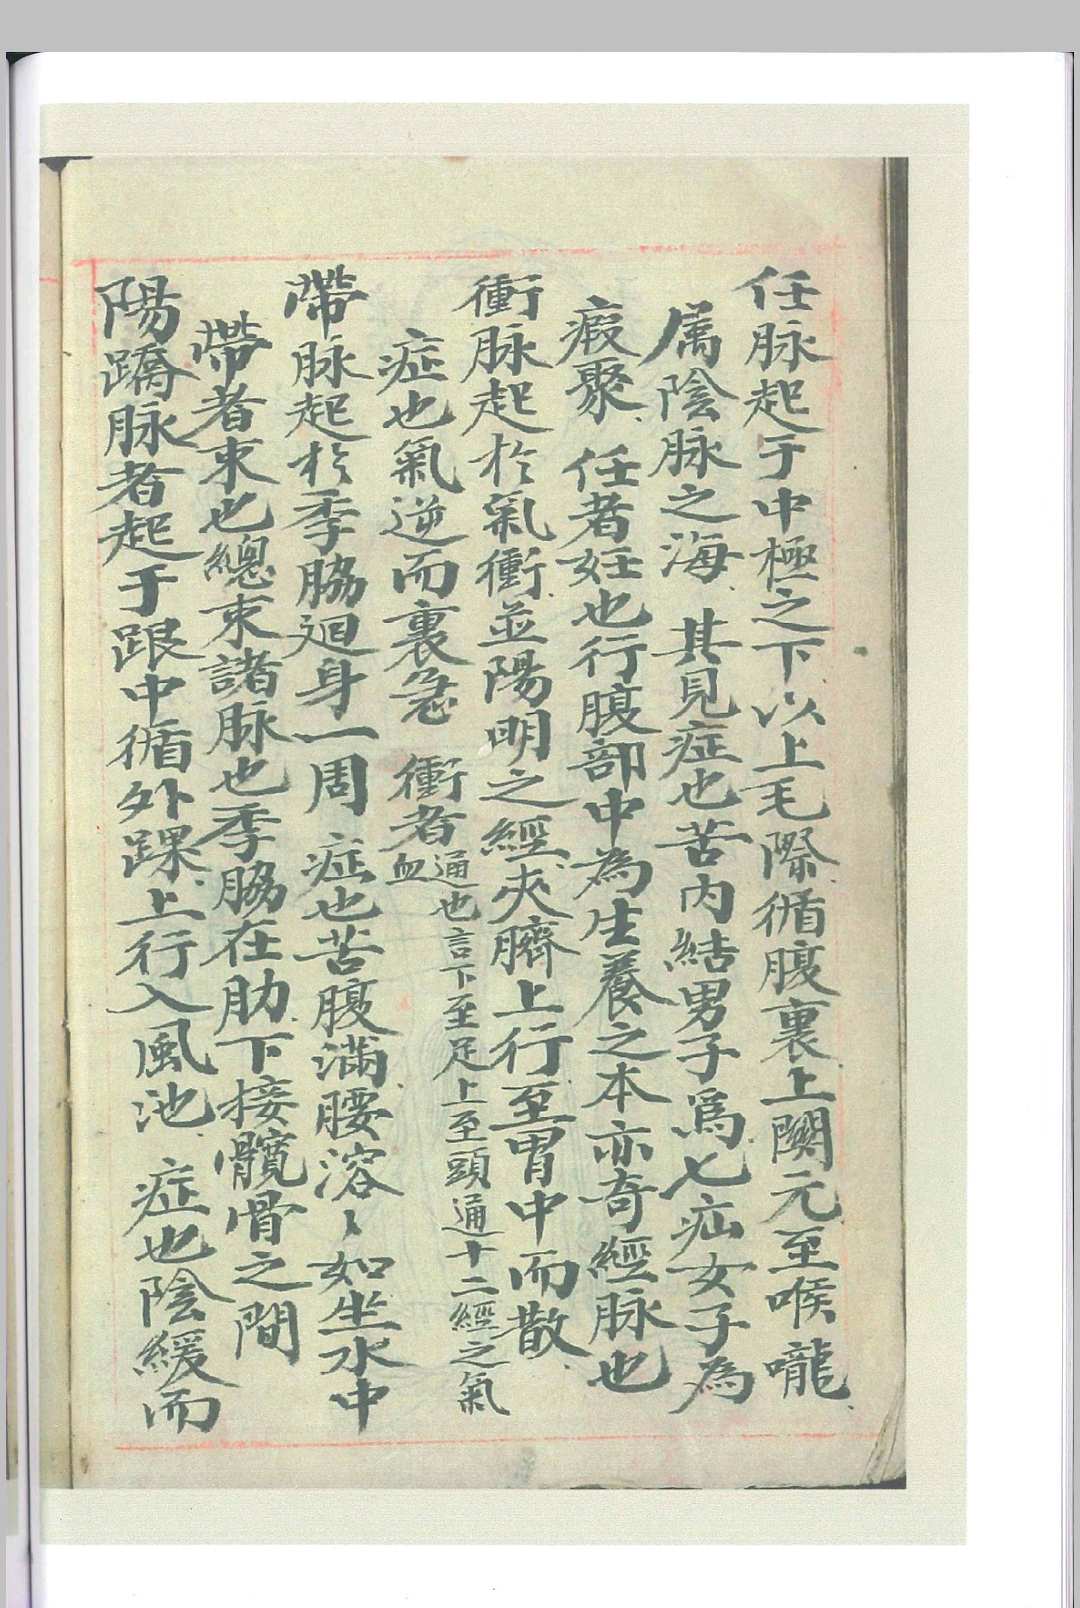 任脉起于中極之下以上毛際循腹裏上關元至喉嚨
属陰脉之海 其見症也苦内結男子爲七疝女子為
瘕聚 任者妊也行腹部中為生養之本亦奇經脉也
衝脉起於氣衝並陽明之經夾臍上行至胃中而散
症也氣逆而裏急 衝者通也言下至足上至頭通十二經之氣
血
帶脉起於季脇廻身一周 症也苦腹滿腰溶〻如坐水中
帶者束也總束諸脉也季脇在肋下接髖骨之間
陽蹻脉者起于跟中循外踝上行入風池 症也陰緩而